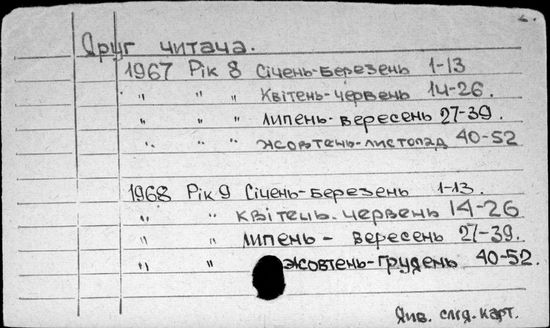 Друг читача.
1967 Рік 8 Січень-Березень 1-13
" " " Квітень-червень 14-26.
" " " липень-вересень 27-39.
" " " жовтень-листопад 40-52
1968 Рік 9 Січень-Березень 1-13.
" " квітень-червень 14-26
" " липень - вересень 27-39.
" " жовтень-грудень 40-52.
Янв. карт.